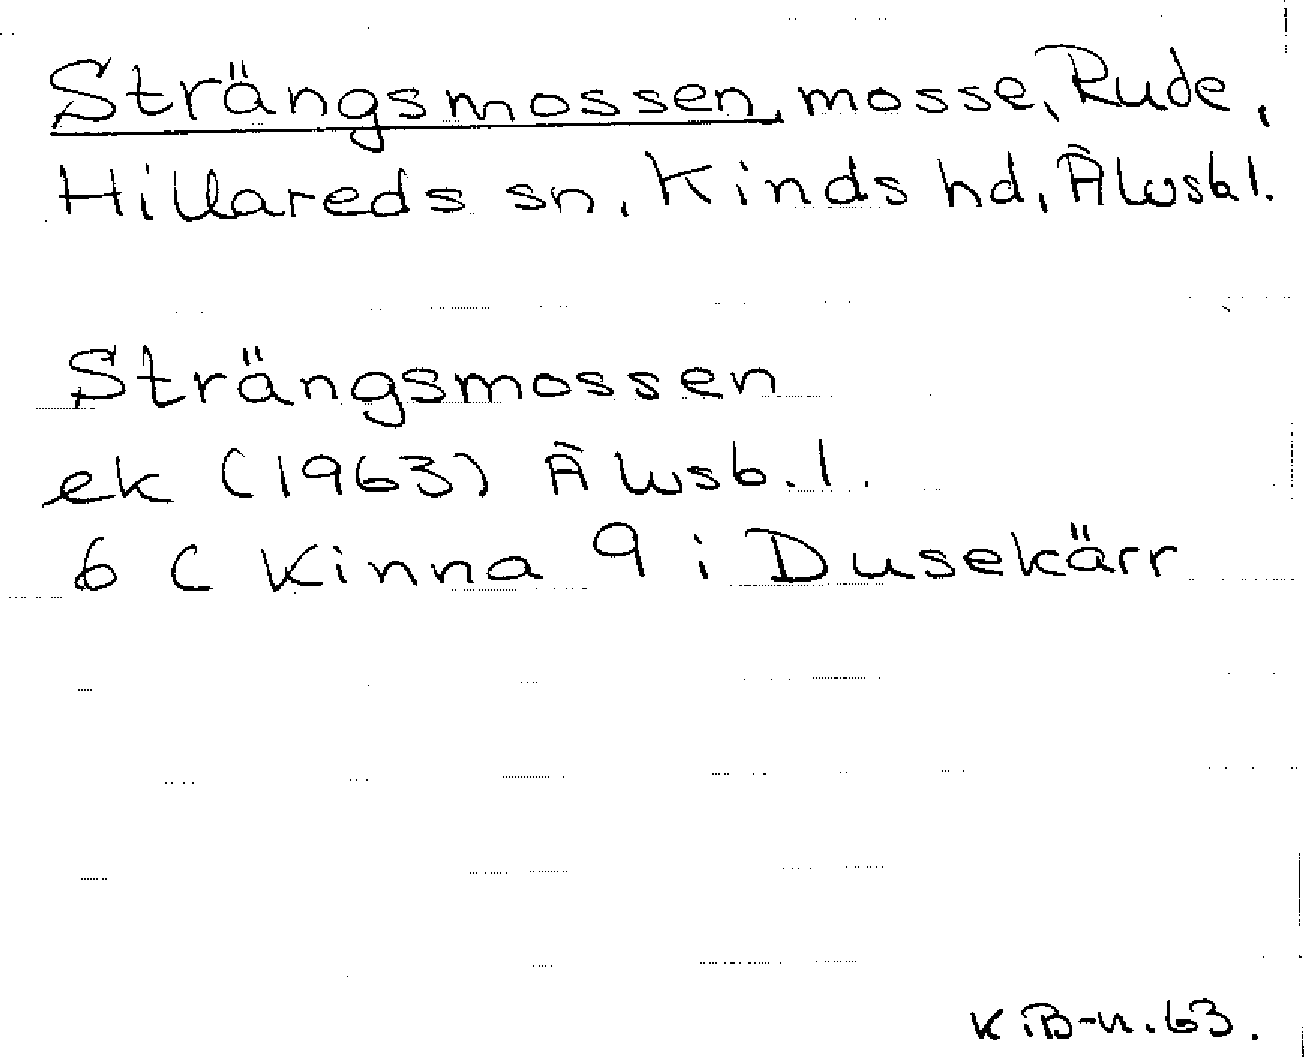 Strängsmossen, mosse, Rude,
Hillareds sn, Kinds hd, Älvsb l.
Strängsmossen
ek (1963) Älvsb. l.
6 C Kinna 9 i Dusekärr
K.B-n.63.